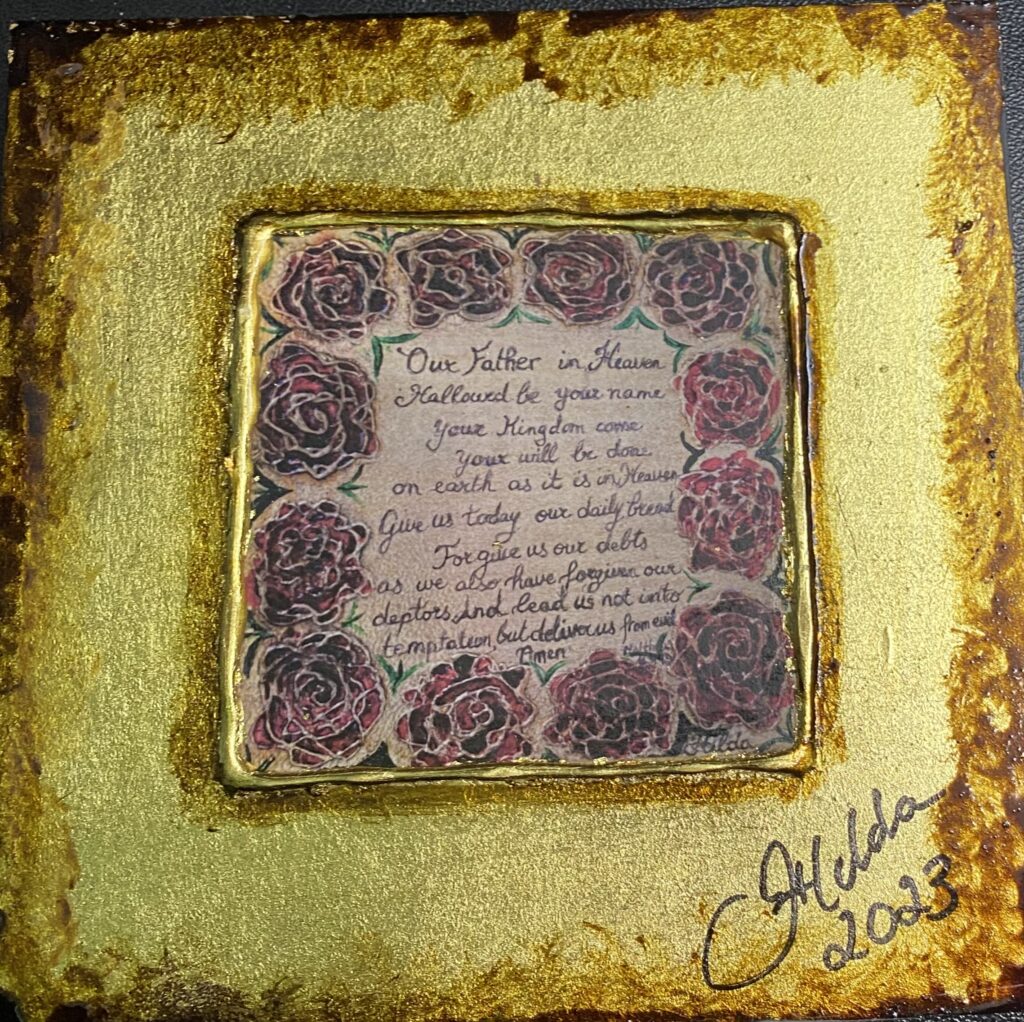 Our Father in Heaven
Hallowed be your name
Your Kingdom come
Your will be done
on earth as it is in Heaven
Give us today our daily bread
Forgive us our debts
as we also have forgiven our
deptors, And lead us not into
temptation, but deliver us from evil
Amen
2023